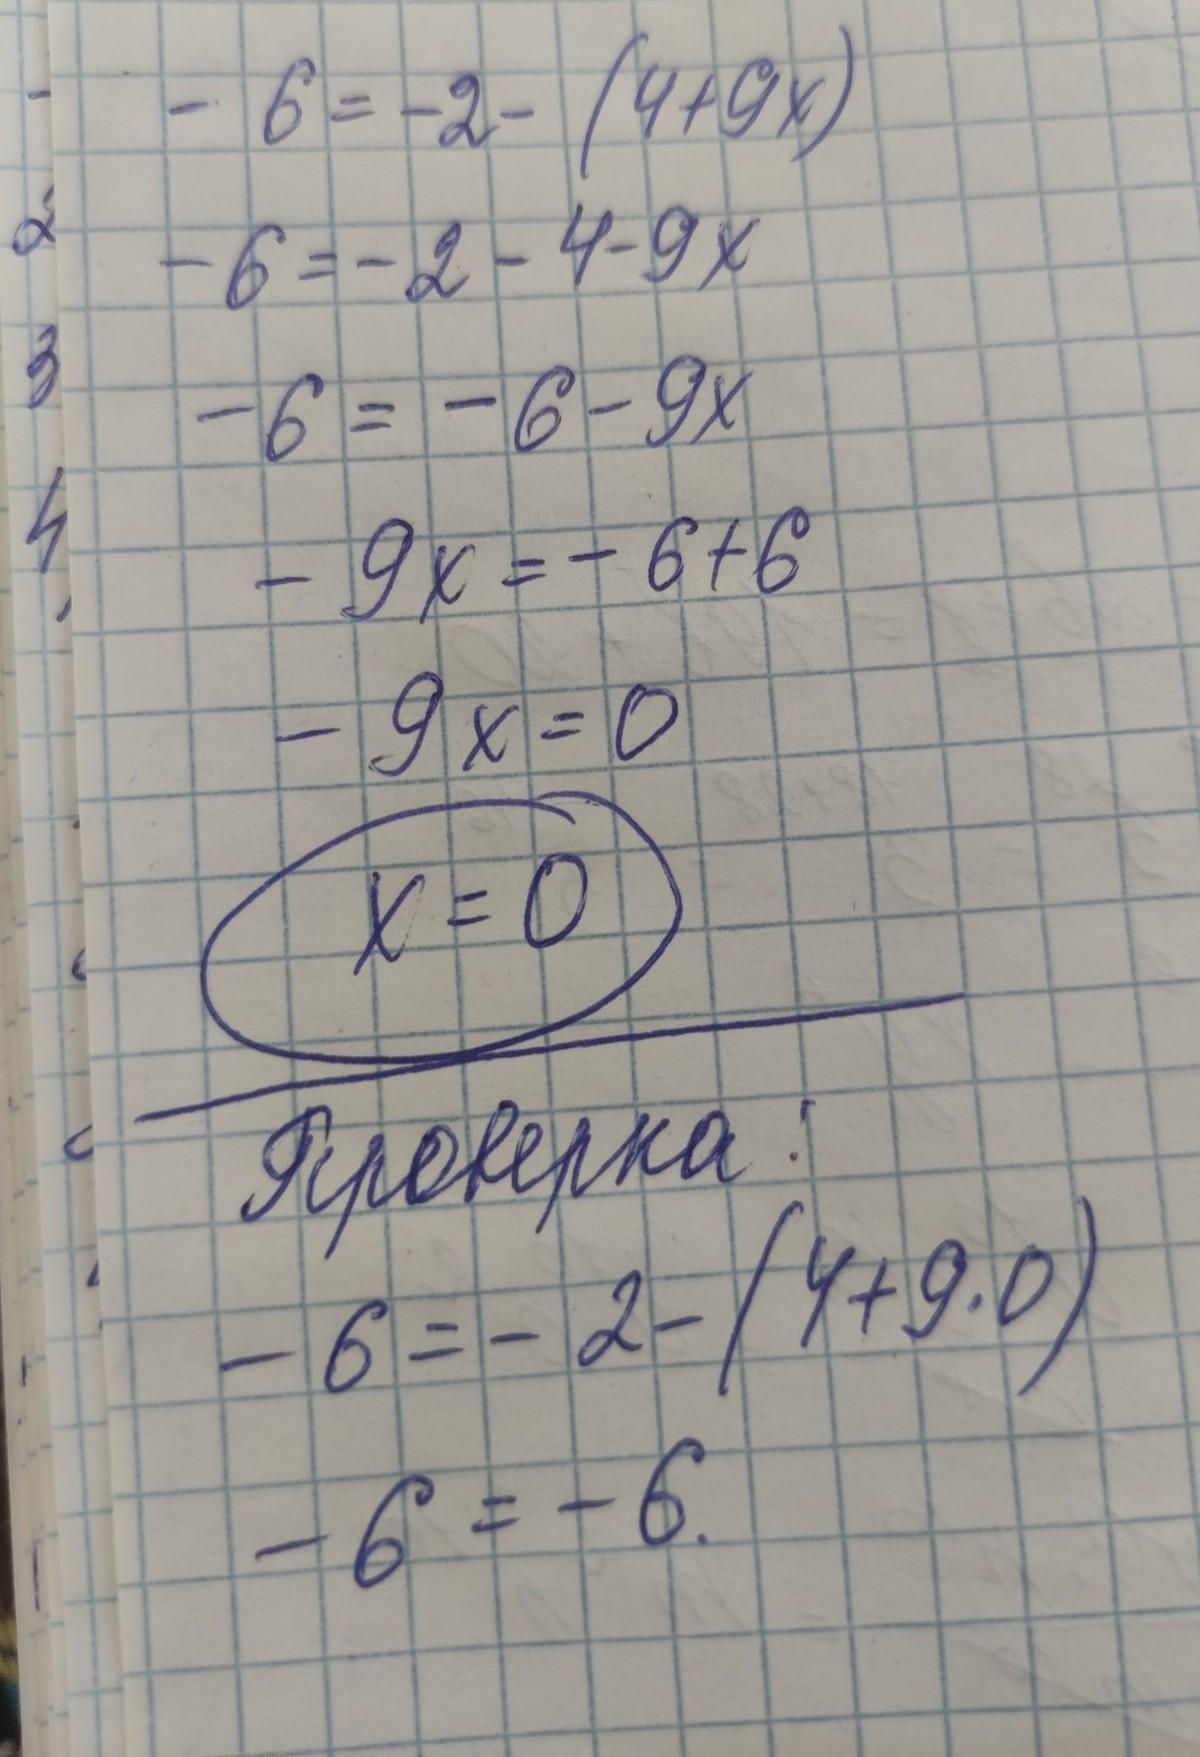 - 6 = -2 - (4+9x)
- 6 = -2 - 4 - 9x
- 6 = - 6 - 9x
- 9x = - 6 + 6
- 9x = 0
x = 0
Проверка:
- 6 = - 2 - (4 + 9 · 0)
- 6 = - 6.